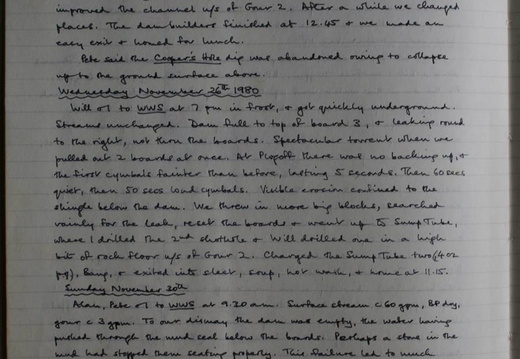 improved the channel u/s of Gour 2. After a while we changed
places. The dam builders finished at 12.45 & we made an
easy exit & homed for lunch.
Pete said the Cooper's Hole dig was abandoned owing to collapse
up to the ground surface above.
Wednesday November 26th 1980
Will & I to WWS at 7 pm in frost, & got quickly underground.
Streams unchanged. Dam full to top of board 3, & leaking round
to the right, not thru the boards. Spectacular torrent when we
pulled out 2 boards at once. At Plopoff there was no backing up, &
the first cymbals fainter than before, lasting 5 seconds. Then 60 secs
quiet, then 50 secs loud cymbals. Visible erosion confined to the
shingle below the dam. We threw in more big blocks, searched
vainly for the leak, reset the boards & went up to Sump Tube,
where I drilled the 2nd shothole & Will drilled one in a high
bit of rock floor u/s of Gour 2. Charged the Sump Tube two (4 oz
pg), Bang, & exited into sleet, soup, hot wash, & home at 11.15.
Sunday November 30th
Alan, Pete & I to WWS at 9.20 am. Surface stream c 60 gpm, BP dry,
gour c 2 gpm. To our dismay the dam was empty, the water having
pushed through the mud seal below the boards. Perhaps a stone in the
mud had stopped them seating properly. This failure led to much